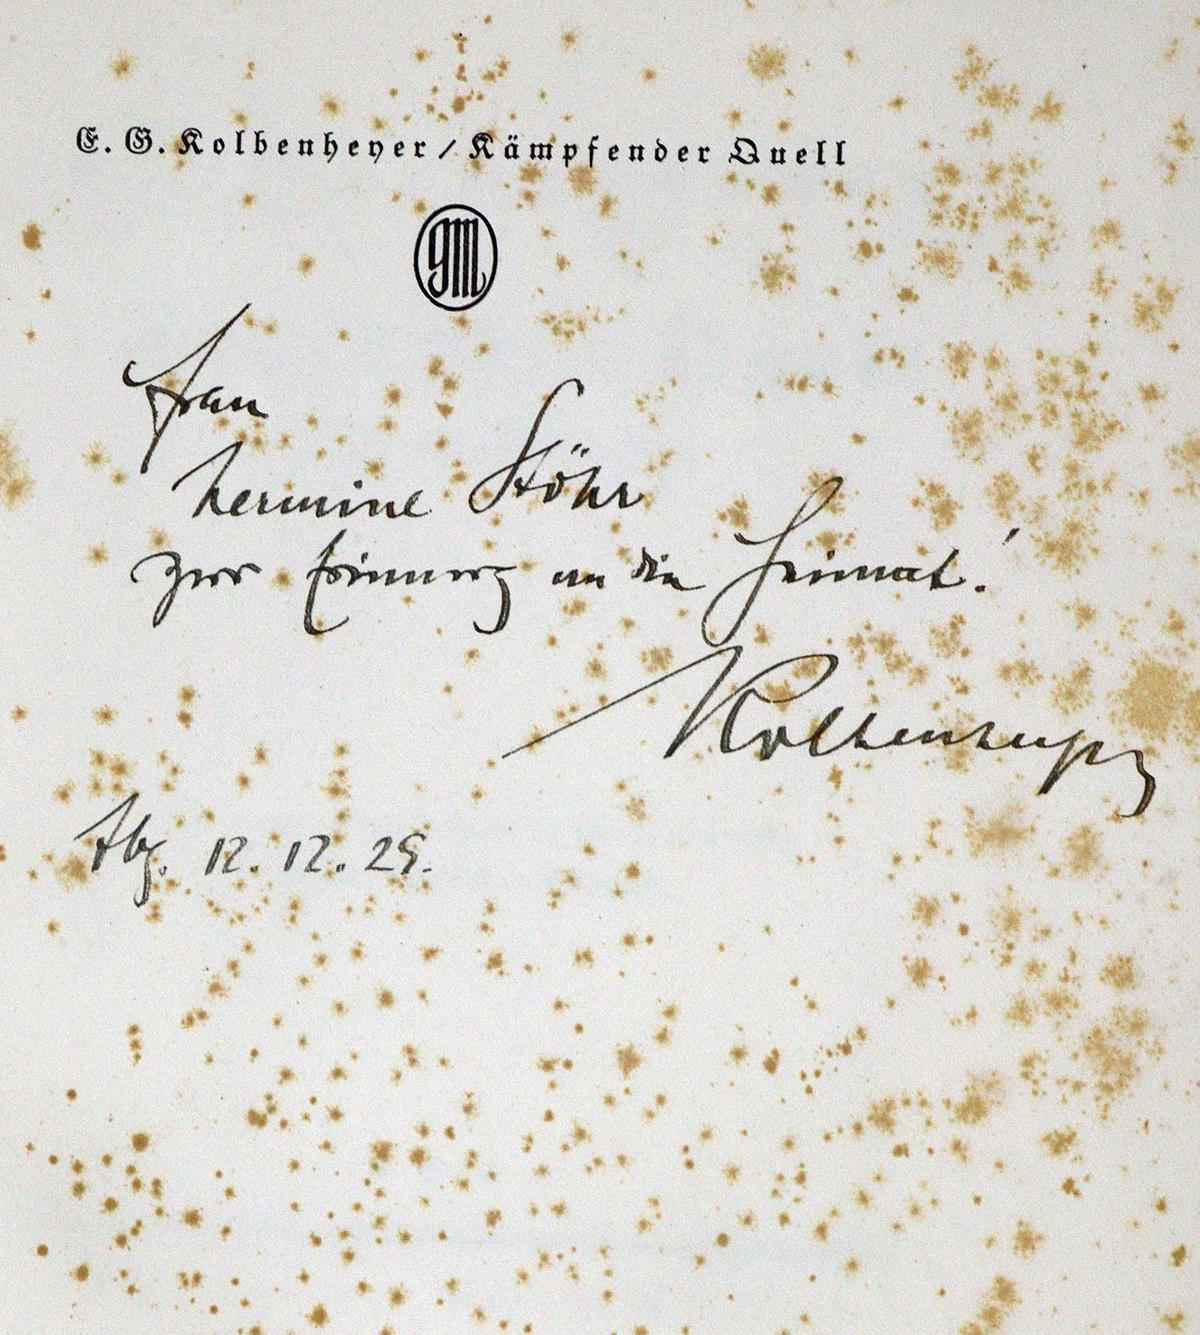 E. G. Kolbenheyer / Kämpfender Quell
GM
Frau
Hermine Stöhr
zur Erinnerung an die Heimat!
Kolbenheyer
Tbg. 12. 12. 29.